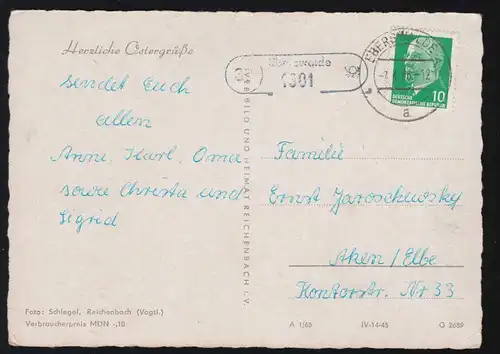 Herzliche Ostergrüße
sendet Euch
allen
Anni, Karl, Oma
sowie Christa und
Sigrid
Foto: Schlegel, Reichenbach (Vogtl.)
Verbraucherpreis MDN -,10
VEB BILD UND HEIMAT REICHENBACH I. V.
Eberswalde
1301
EBERSWALDE
a
10
DEUTSCHE
DEMOKRATISCHE REPUBLIK
Familie
Ernst Jaroschewsky
Aken/Elbe
Kantorstr. Nr 33
A 1/65 IV-14-45 G 2689